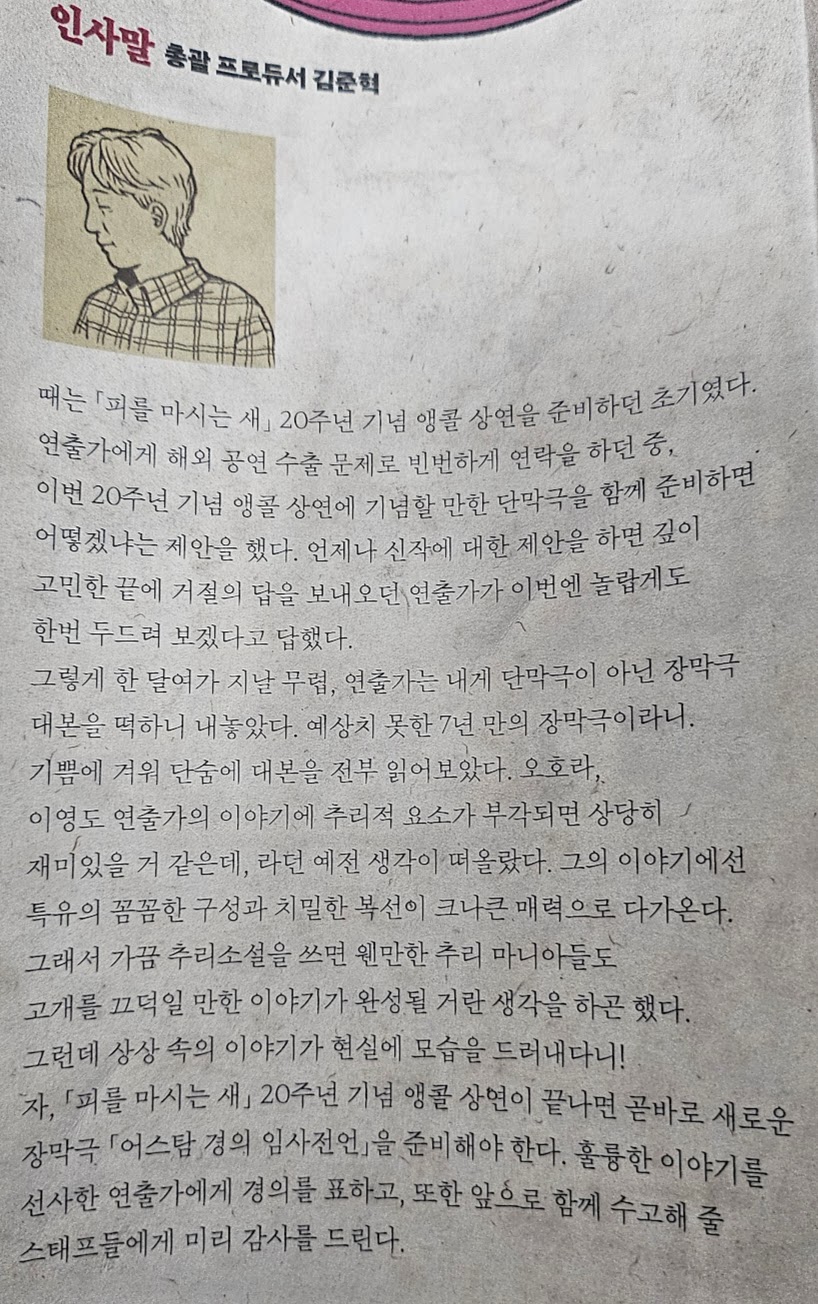 인사말 총괄 프로듀서 김준혁
때는 「피를 마시는 새」 20주년 기념 앵콜 상연을 준비하던 초기였다.
연출가에게 해외 공연 수출 문제로 빈번하게 연락을 하던 중,
이번 20주년 기념 앵콜 상연에 기념할 만한 단막극을 함께 준비하면
어떻겠냐는 제안을 했다. 언제나 신작에 대한 제안을 하면 깊이
고민한 끝에 거절의 답을 보내오던 연출가가 이번엔 놀랍게도
한번 두드려 보겠다고 답했다.
그렇게 한 달여가 지날 무렵, 연출가는 내게 단막극이 아닌 장막극
대본을 떡하니 내놓았다. 예상치 못한 7년 만의 장막극이라니.
기쁨에 겨워 단숨에 대본을 전부 읽어보았다. 오호라,
이영도 연출가의 이야기에 추리적 요소가 부각되면 상당히
재미있을 거 같은데, 라던 예전 생각이 떠올랐다. 그의 이야기에선
특유의 꼼꼼한 구성과 치밀한 복선이 크나큰 매력으로 다가온다.
그래서 가끔 추리소설을 쓰면 웬만한 추리 마니아들도
고개를 끄덕일 만한 이야기가 완성될 거란 생각을 하곤 했다.
그런데 상상 속의 이야기가 현실에 모습을 드러내다니!
자, 「피를 마시는 새」 20주년 기념 앵콜 상연이 끝나면 곧바로 새로운
장막극 「어스탐 경의 임사전언」을 준비해야 한다. 훌륭한 이야기를
선사한 연출가에게 경의를 표하고, 또한 앞으로 함께 수고해 줄
스태프들에게 미리 감사를 드린다.